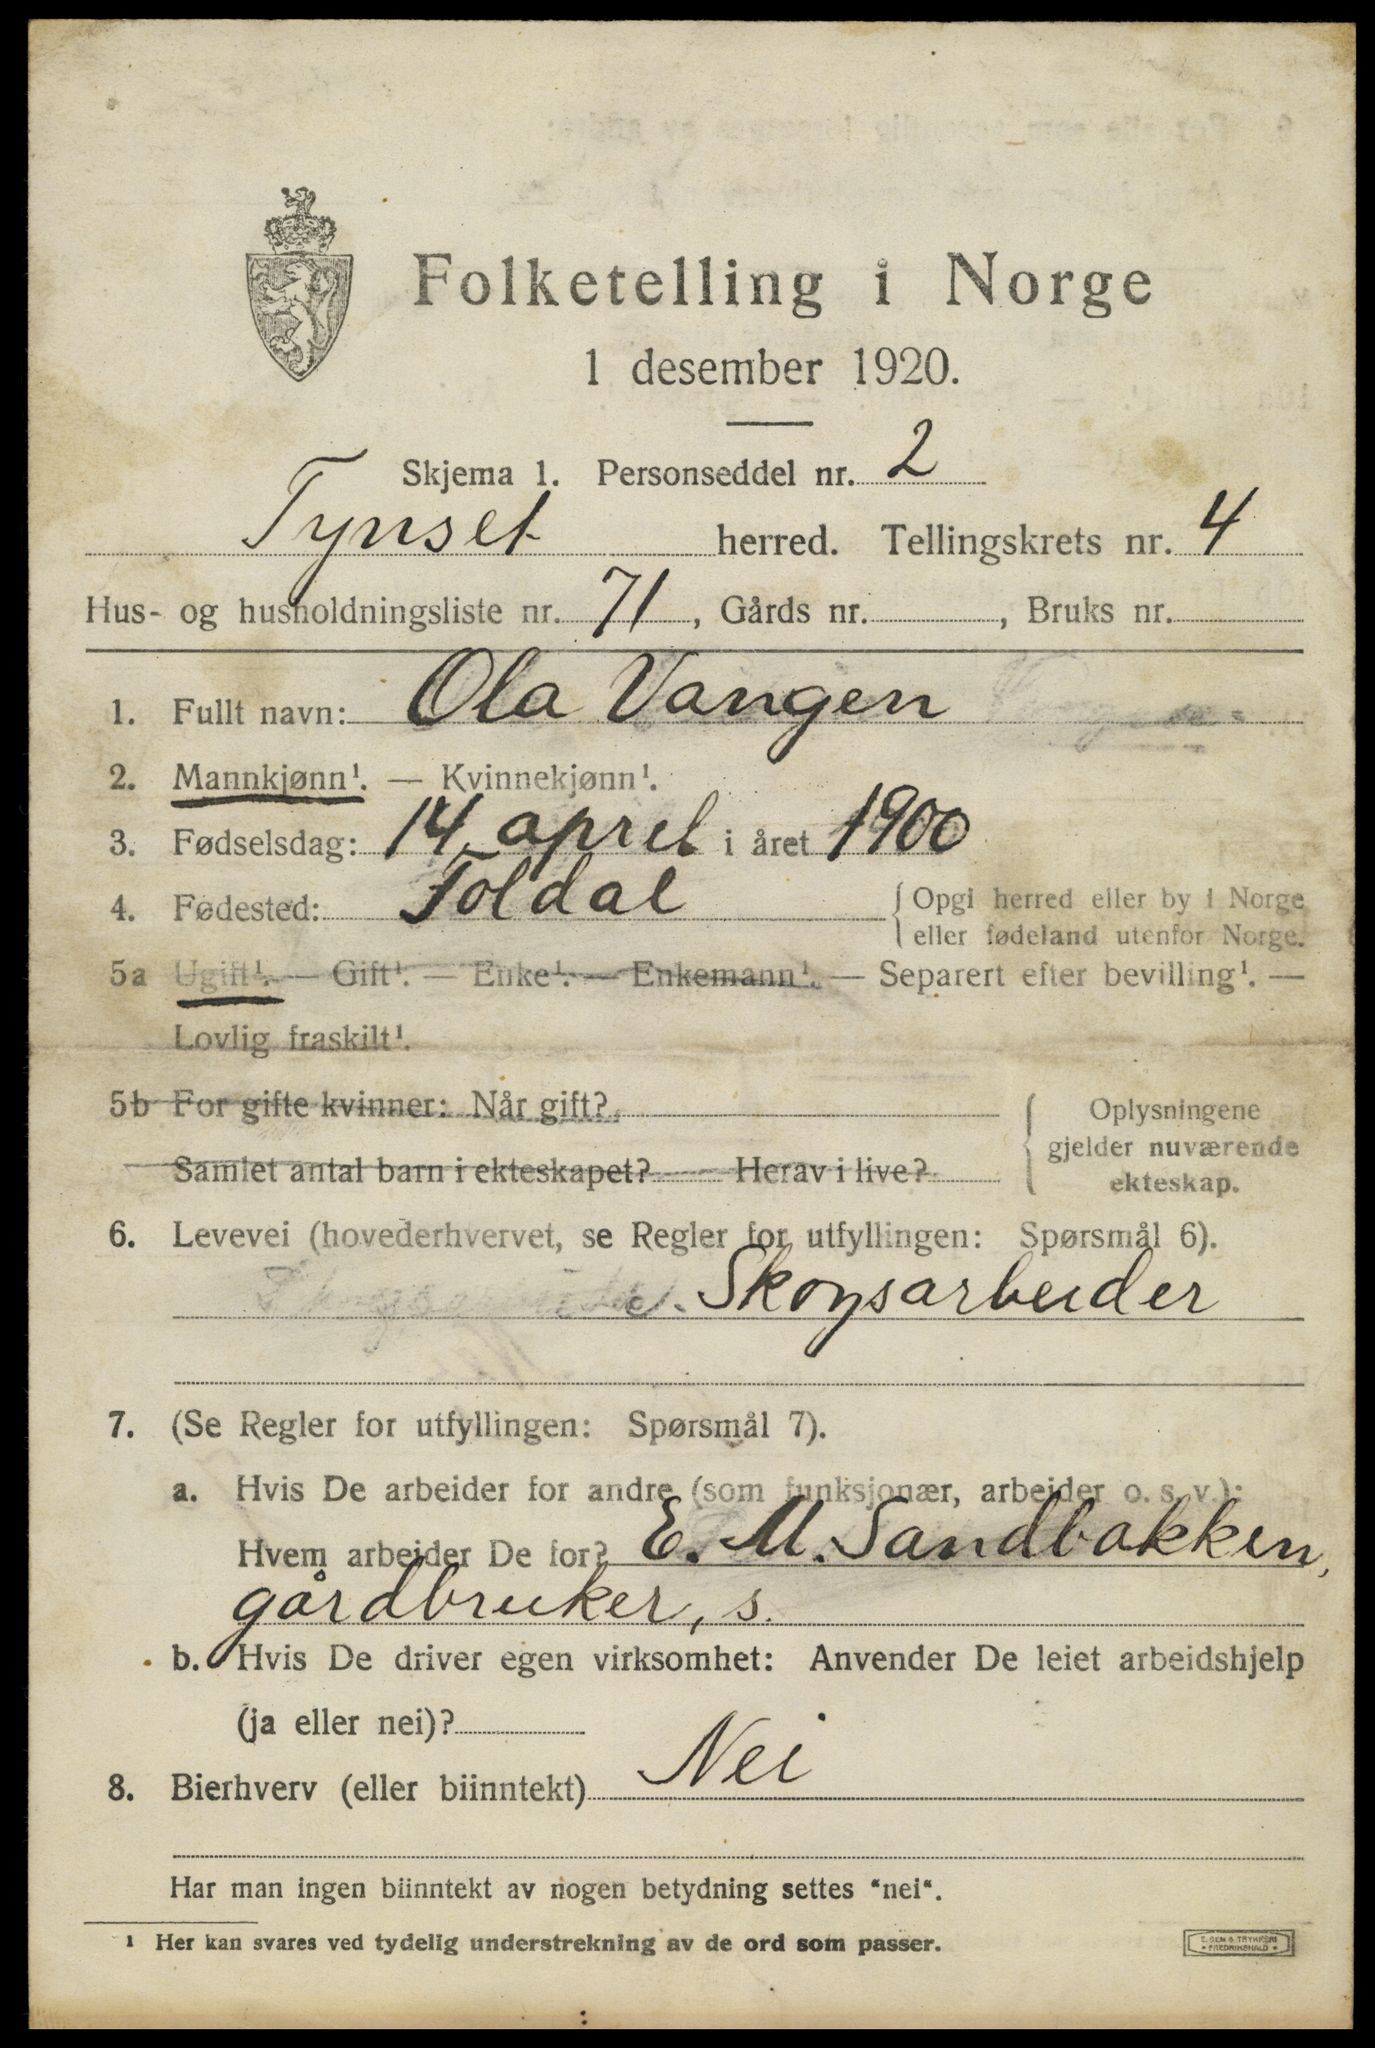 Folketelling i Norge
1 desember 1920.
Skjema 1. Personseddel nr. 2
Tynset herred. Tellingskrets nr. 4
Hus- og husholdningsliste nr. 71, Gårds nr. , Bruks nr.
1. Fullt navn: Ola Vangen
2. Mannkjønn¹. — Kvinnekjønn¹.
3. Fødselsdag: 14 april i året 1900
4. Fødested: Foldal { Opgi herred eller by i Norge
eller fødeland utenfor Norge.
5a Ugift¹. — Gift¹. — Enke¹. — Enkemann¹. — Separert efter bevilling¹. —
Lovlig fraskilt¹.
5b For gifte kvinner: Når gift? { Oplysningene
gjelder nuværende
Samlet antal barn i ekteskapet? Herav i live? ekteskap.
6. Levevei (hovederhvervet, se Regler for utfyllingen: Spørsmål 6).
Skogsarbeider
7. (Se Regler for utfyllingen: Spørsmål 7).
a. Hvis De arbeider for andre (som funksjonær, arbeider o. s. v.):
Hvem arbeider De for? E. M. Sandbakken,
gårdbruker, s.
b. Hvis De driver egen virksomhet: Anvender De leiet arbeidshjelp
(ja eller nei)?
8. Bierhverv (eller biinntekt) Nei
Har man ingen biinntekt av nogen betydning settes "nei".
¹ Her kan svares ved tydelig understrekning av de ord som passer.
E. SEM S TRYKKERI
• FREDRIKSHALD •